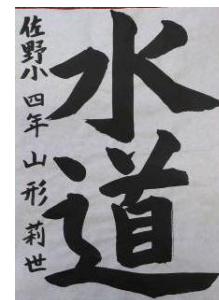 水道
佐野小 四年 山形 莉世